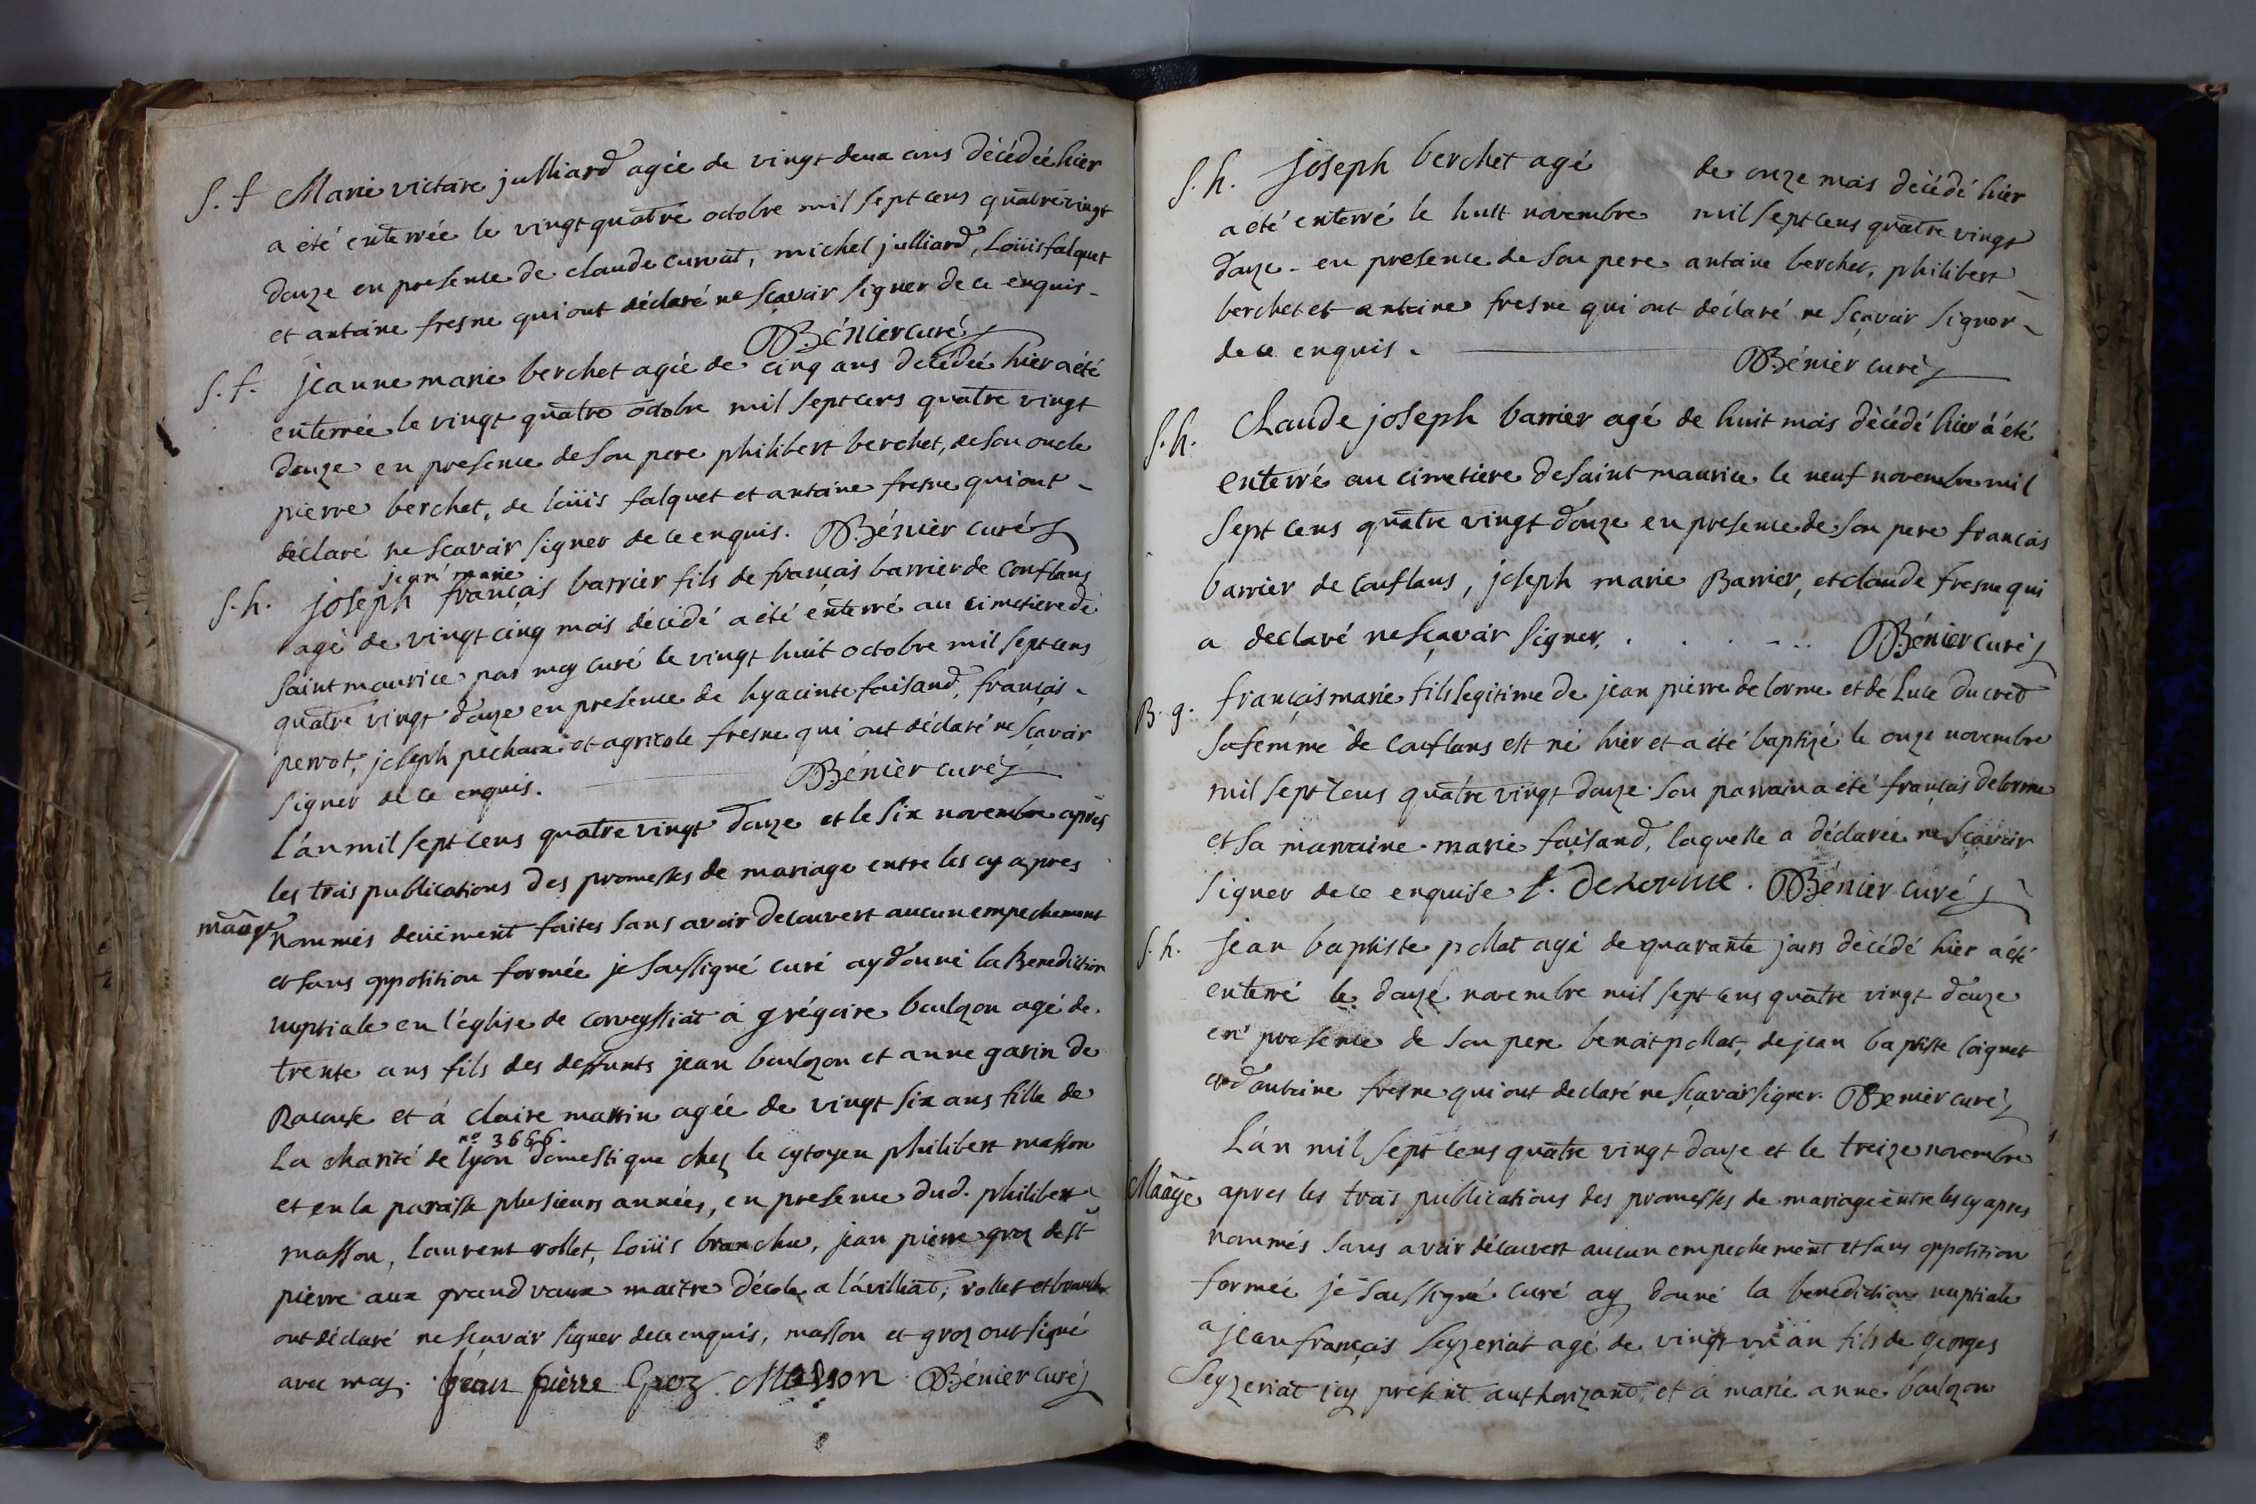 S. f Marie victoire julliard agée de vingt deux ans décédée hier
a été enterrée le vingt quatre octobre mil sept cens quatre vingt
douze en presence de claude curvat, michel julliard, Loüis falquet
et antoine fresne qui ont déclaré ne sçavoir signer de ce enquis -
Bénier curé
S. f. jeanne marie berchet agée de cinq ans decédée hier a été
enterrée le vingt quatre octobre mil sept cens quatre vingt
douze en presence de son pere philibert berchet, de son oncle
pierre berchet, de loüis falquet et antoine fresne qui ont -
déclaré ne sçavoir signer de ce enquis. Bénier curé
jean marie
S. h. joseph français barrier fils de français barrier de Conflans
agé de vingt cinq mois décédé a été enterré au cimetiere de
saint maurice par moy curé le vingt huit octobre mil sept cens
quatre vingt douze en presence de hyacinte faisand, français -
perrot, joseph pechoux et agricole fresne qui ont déclaré ne sçavoir
signer de ce enquis. Bénier curé
L'án mil sept cens quatre vingt douze et le six novembre après
les trois publications des promesses de mariage entre les cy apres
maage nommés deüement faites sans avoir decouvert aucun empechement
et sans opposition formée je soussigné curé ay donné la Benediction
nuptiale en l'église de corveyssiat à grégoire boulzon agé de
trente ans fils des deffunts jean boulozon et anne garin de
Racouse et à claire martin agée de vingt six ans fille de
no 3666.
La charité de lyon domestique chez le cytoyen philibert masson
et en la paroisse plusieurs années, en presence dud. philibert
masson, Laurent rollet, Loüis branchu, jean pierre groz de st
pierre aux grandvaux maitre d'école a lávilliat, rollet et branchu
ont déclaré ne sçavoir signer de ce enquis, masson et groz ont signé
avec moy. jean pierre Groz. Masson Bénier curé
S. h. joseph berchet agé de onze mois décédé hier
a eté enterré le huit novembre mil sept cens quatre vingt
douze - en presence de son pere antoine berchet, philibert
berchet et antoine fresne qui ont déclaré ne sçavoir signer -
de ce enquis. Bénier curé
S. h. Claude joseph barrier agé de huit mois décédé hier a été
enterré au cimetiere de saint maurice le neuf novembre mil
sept cens quatre vingt douze en presence de son pere francais
barrier de conflans, joseph marie Barrier, et claude fresne qui
a declaré ne sçavoir signer. . . . - .. Bénier curé
B. g. français marie fils legitime de jean pierre delorme et de Luce Ducret
sa femme de conflans est né hier et a été baptizé le onze novembre
mil sept cens quatre vingt douze. son parrain a eté français delorme
et sa marraine . marie faisand, laquelle a déclarée ne sçavoir
signer de ce enquise f. Delorme. Bénier curé
S. h. jean baptiste pollat agé de quarante jours décédé hier a été
enterré le douze novembre mil sept cens quatre vingt douze
en presence de son pere benoit pollat, de jean baptiste loignet
et d'antoine fresne qui ont declaré ne sçavoir signer. Benier curé
L'án mil sept cens quatre vingt douze et le treize novembre
Maage apres les trois publications des promesses de mariage entre les cy apres
nommés sans avoir découvert aucun empechement et sans opposition
formée je soussigné curé ay donné la benediction nuptiale
a jean français seyzeriat agé de vingt un an fils de georges
Seyzeriat icy present authorizant, et à marie anne boulozon